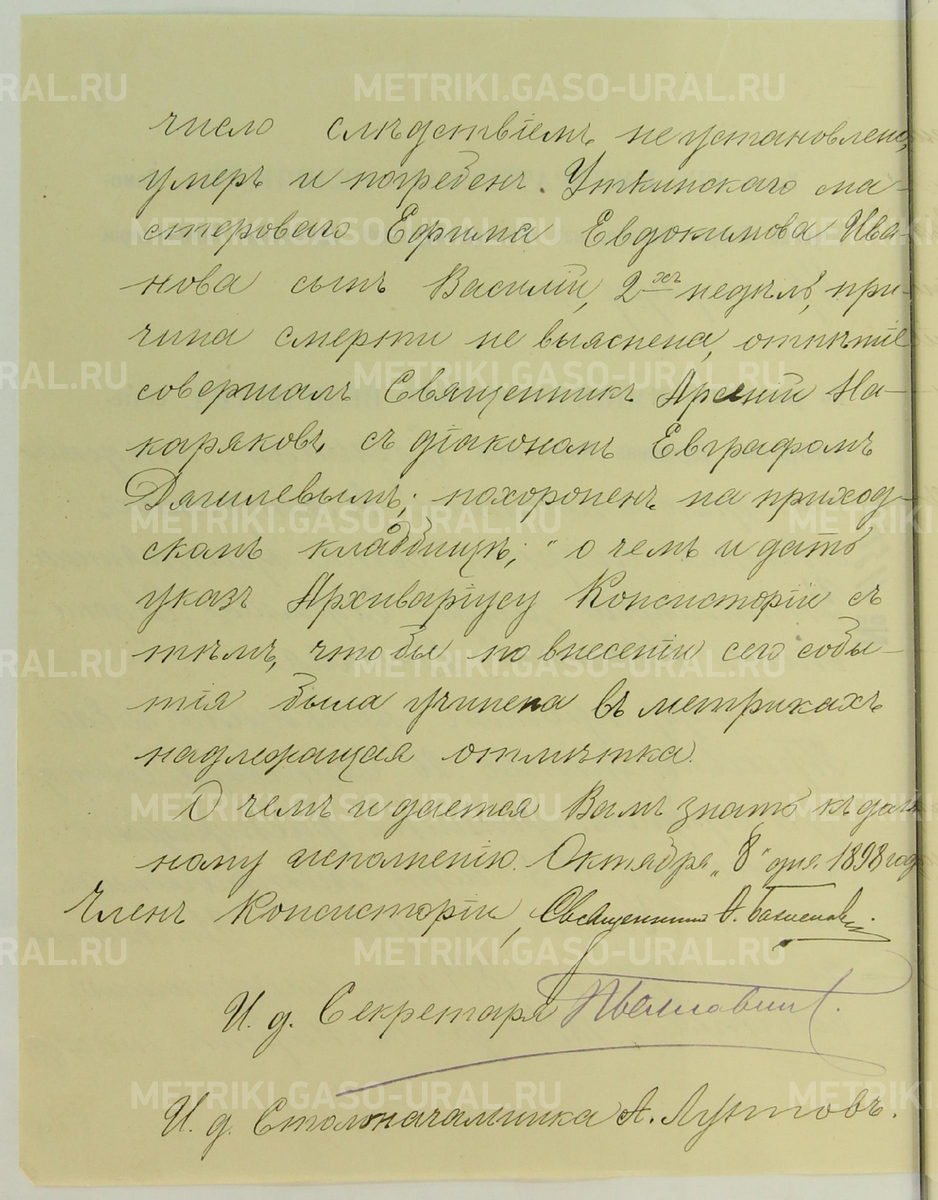 число слѣдствіемъ не установлено,
умеръ и погребенъ. Уткинскаго ма-
стероваго Ефима Евдокимова Ива-
нова сынъ Василій, 2хъ недѣль, при-
чина смерти не выяснена, отпѣтіе
совершалъ Священникъ Арсеній На-
каряковъ, съ діакономъ Евграфомъ
Дягилевымъ; похороненъ на приход-
скомъ кладбищѣ;" о чемъ и дать
указъ Архиваріусу Консисторіи съ
тѣмъ, чтобы по внесеніи сего собы-
тія была учинена въ метрикахъ
надлежащая отмѣтка.
О чемъ и дается Вамъ знать къ долж-
ному исполненію. Октября "8" дня 1898 года
Членъ Консисторіи, Священникъ А.
И. д. Секретаря
И. д. Столоначальника А. Лутовъ.
METRIKI.GASO-URAL.RU